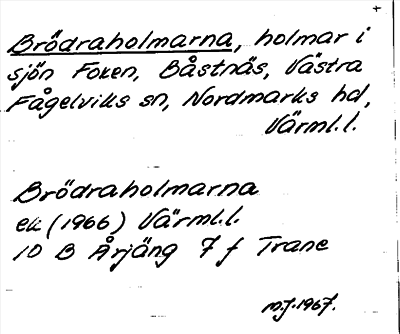 +
Brödraholmarna, holmar i
sjön Foxen, Båstnäs, Västra
Fågelviks sn, Nordmarks hd,
Värml.l.
Brödraholmarna
ek (1966) Värml.l.
10 B Årjäng 7 f Trane
M.J. 1967.